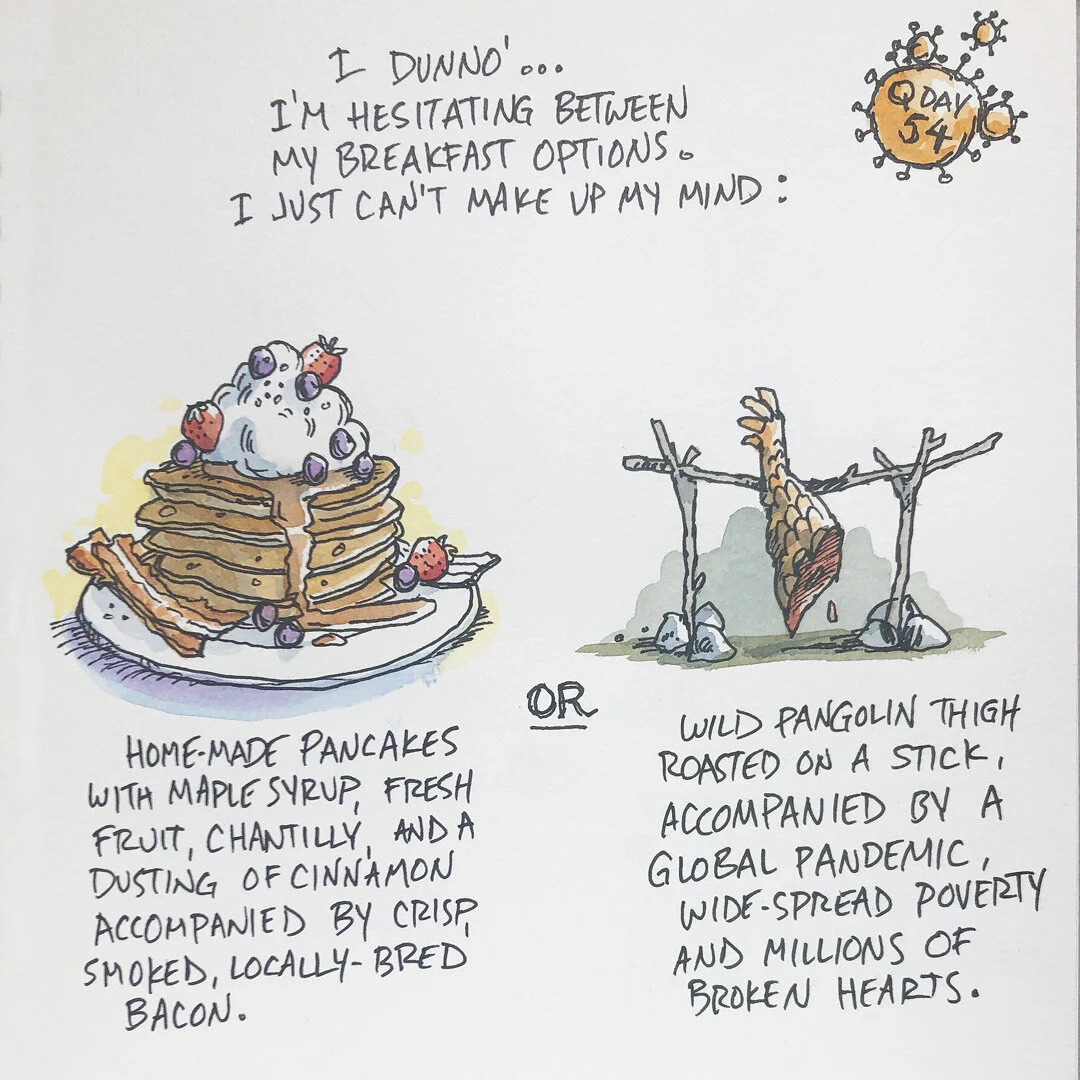 I DUNNO'...
I'M HESITATING BETWEEN
MY BREAKFAST OPTIONS.
I JUST CAN'T MAKE UP MY MIND:
Q DAY
54
HOME-MADE PANCAKES
WITH MAPLE SYRUP, FRESH
FRUIT, CHANTILLY, AND A
DUSTING OF CINNAMON
ACCOMPANIED BY CRISP,
SMOKED, LOCALLY-BRED
BACON.
OR
WILD PANGOLIN THIGH
ROASTED ON A STICK,
ACCOMPANIED BY A
GLOBAL PANDEMIC,
WIDE-SPREAD POVERTY
AND MILLIONS OF
BROKEN HEARTS.